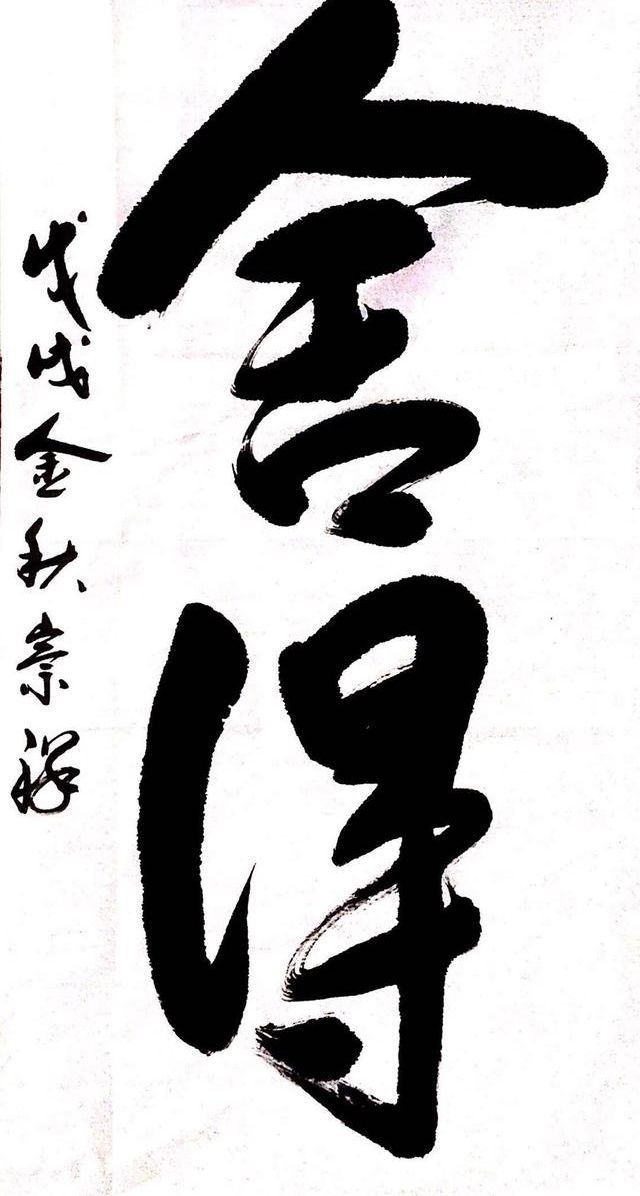 舍得
戊戌金秋崇祥